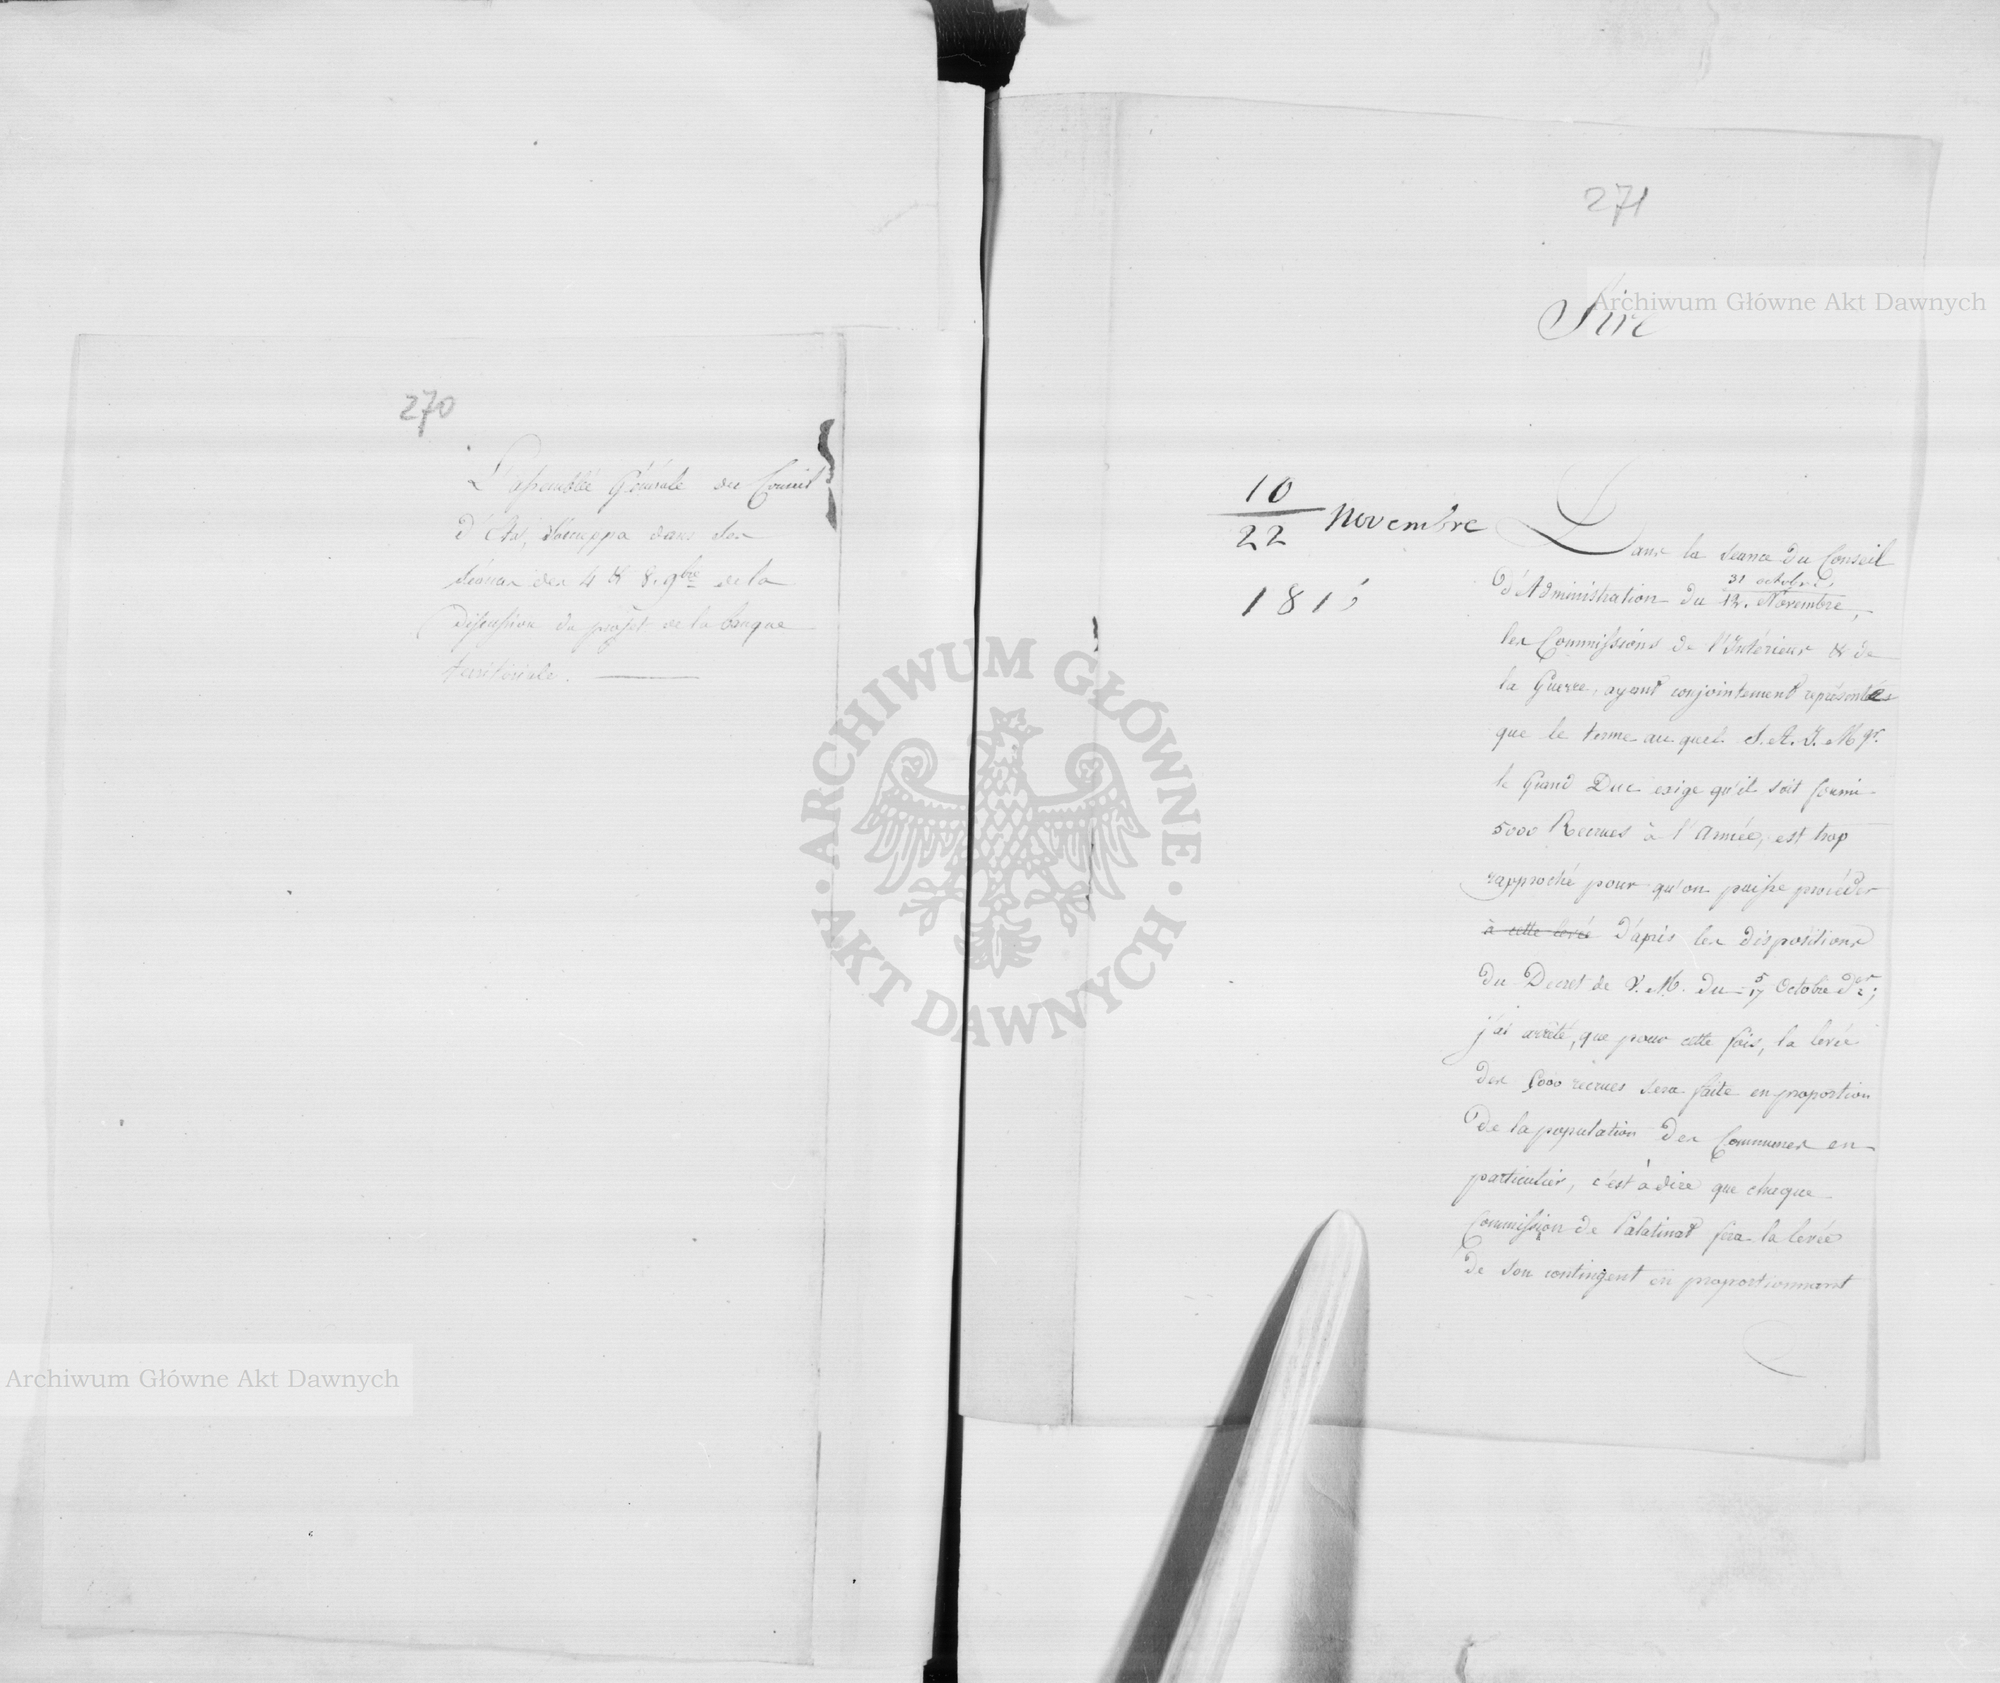 270
L'assemblée Générale du Conseil
d'Etat, s'occuppa dans ses
séances des 4 & 8. 9bre de la
discussion du projet de la banque
territoriale.
271
Sire
10
22 Novembre
1816
Dans la séance du Conseil
d'Administration du 31 octobre
12. Novembre,
les Commissions de l'Intérieur & de
la Guerre, ayant conjointement représentées
que le terme au quel S. A. I. Mgr.
le Grand Duc exige qu'il soit fourni
5000 Recrues à l'Armée, est trop
rapproché pour qu'on puisse procéder
à cette levée d'après les dispositions
du Decret de V. M. du 5/17 Octobre dr;
j'ai arrêté, que pour cette fois, la levée
des 5000 recrues sera faite en proportion
de la population des Communes en
particulier, c'est à dire que chaque
Commission de Palatinat fera la levée
de son contingent en proportionnant
Archiwum Główne Akt Dawnych
Archiwum Główne Akt Dawnych
ARCHIWUM GŁÓWNE
AKT DAWNYCH